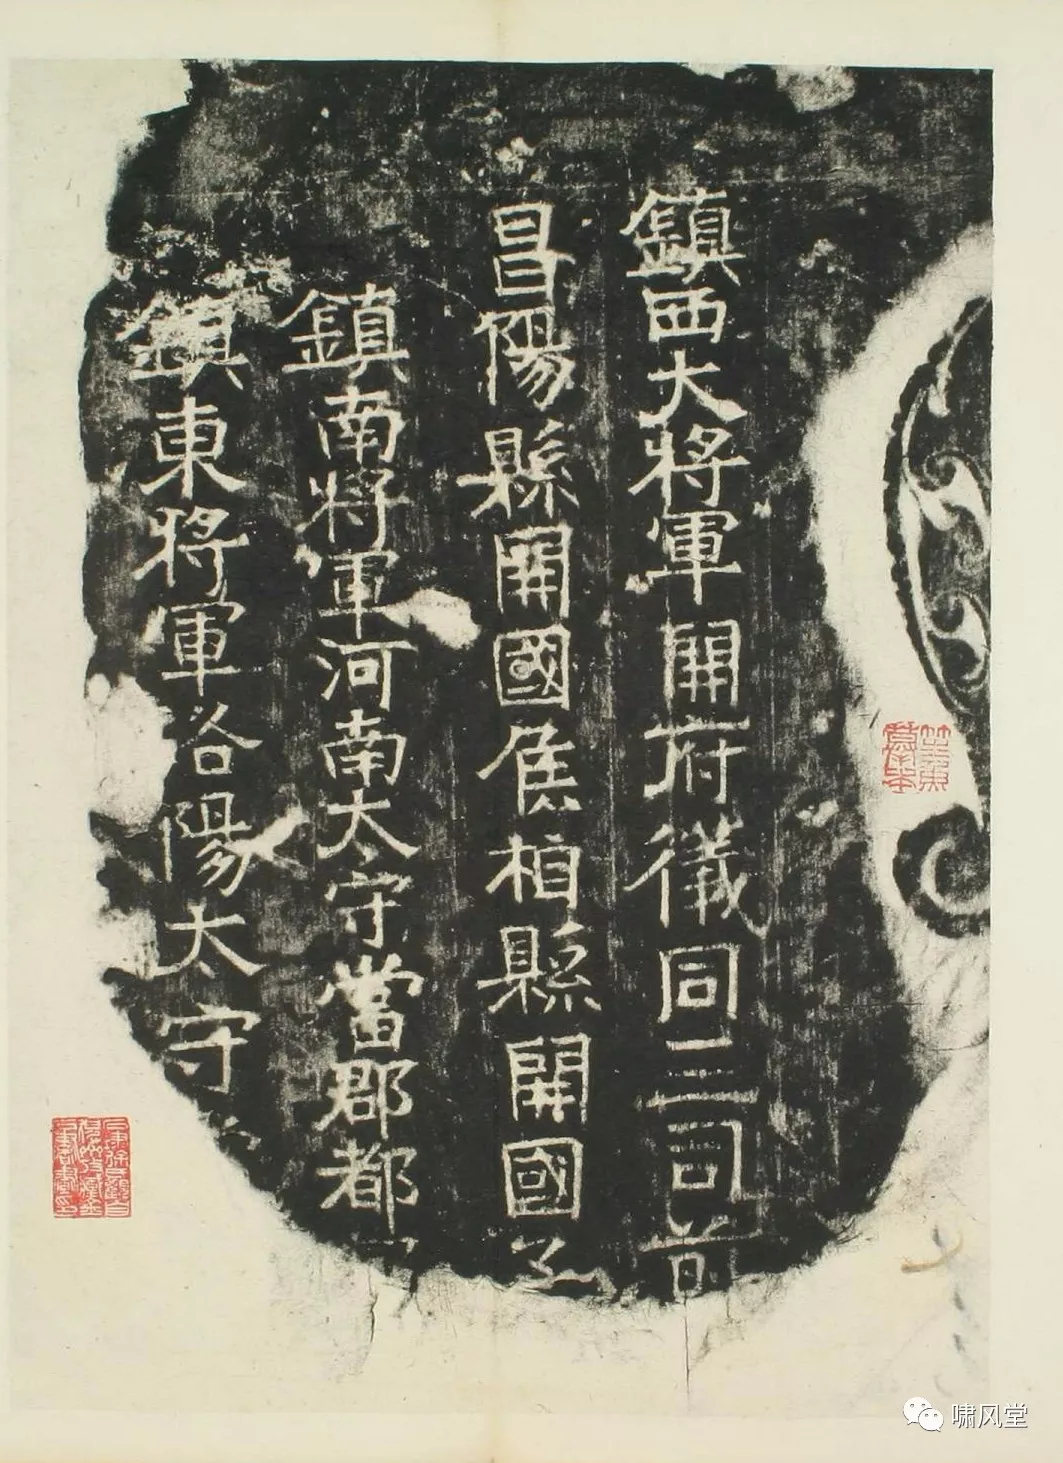 鎮西大將軍開府儀同三司前
昌陽縣開國侯柏縣開國子
鎮南將軍河南太守當郡都
鎮東將軍洛陽太守
啸风堂